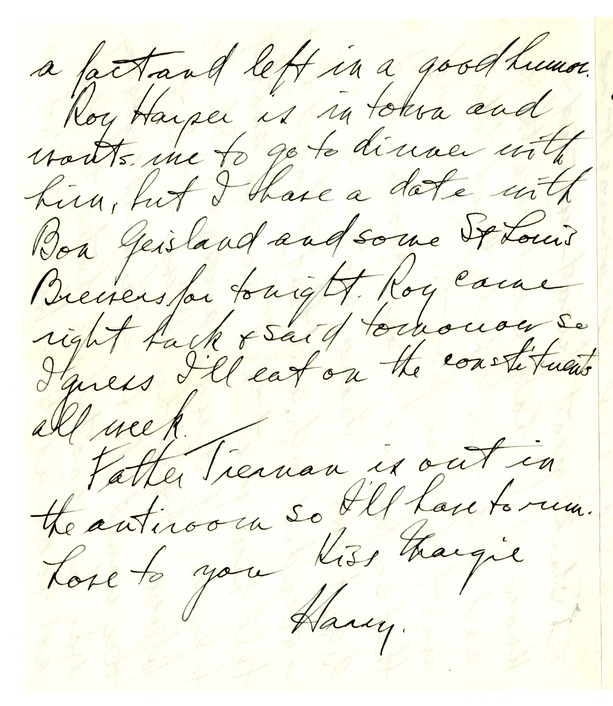 a fact and left in a good humor.
Roy Harper is in town and
wants me to go to dinner with
him, but I have a date with
Bon Geisland and some St Louis
Brewers for tonight. Roy came
right back & said tomorrow so
I guess I'll eat on the constituents
all week.
Father Tiernan is out in
the anti room so I'll have to run.
Love to you Kiss Margie
Harry.